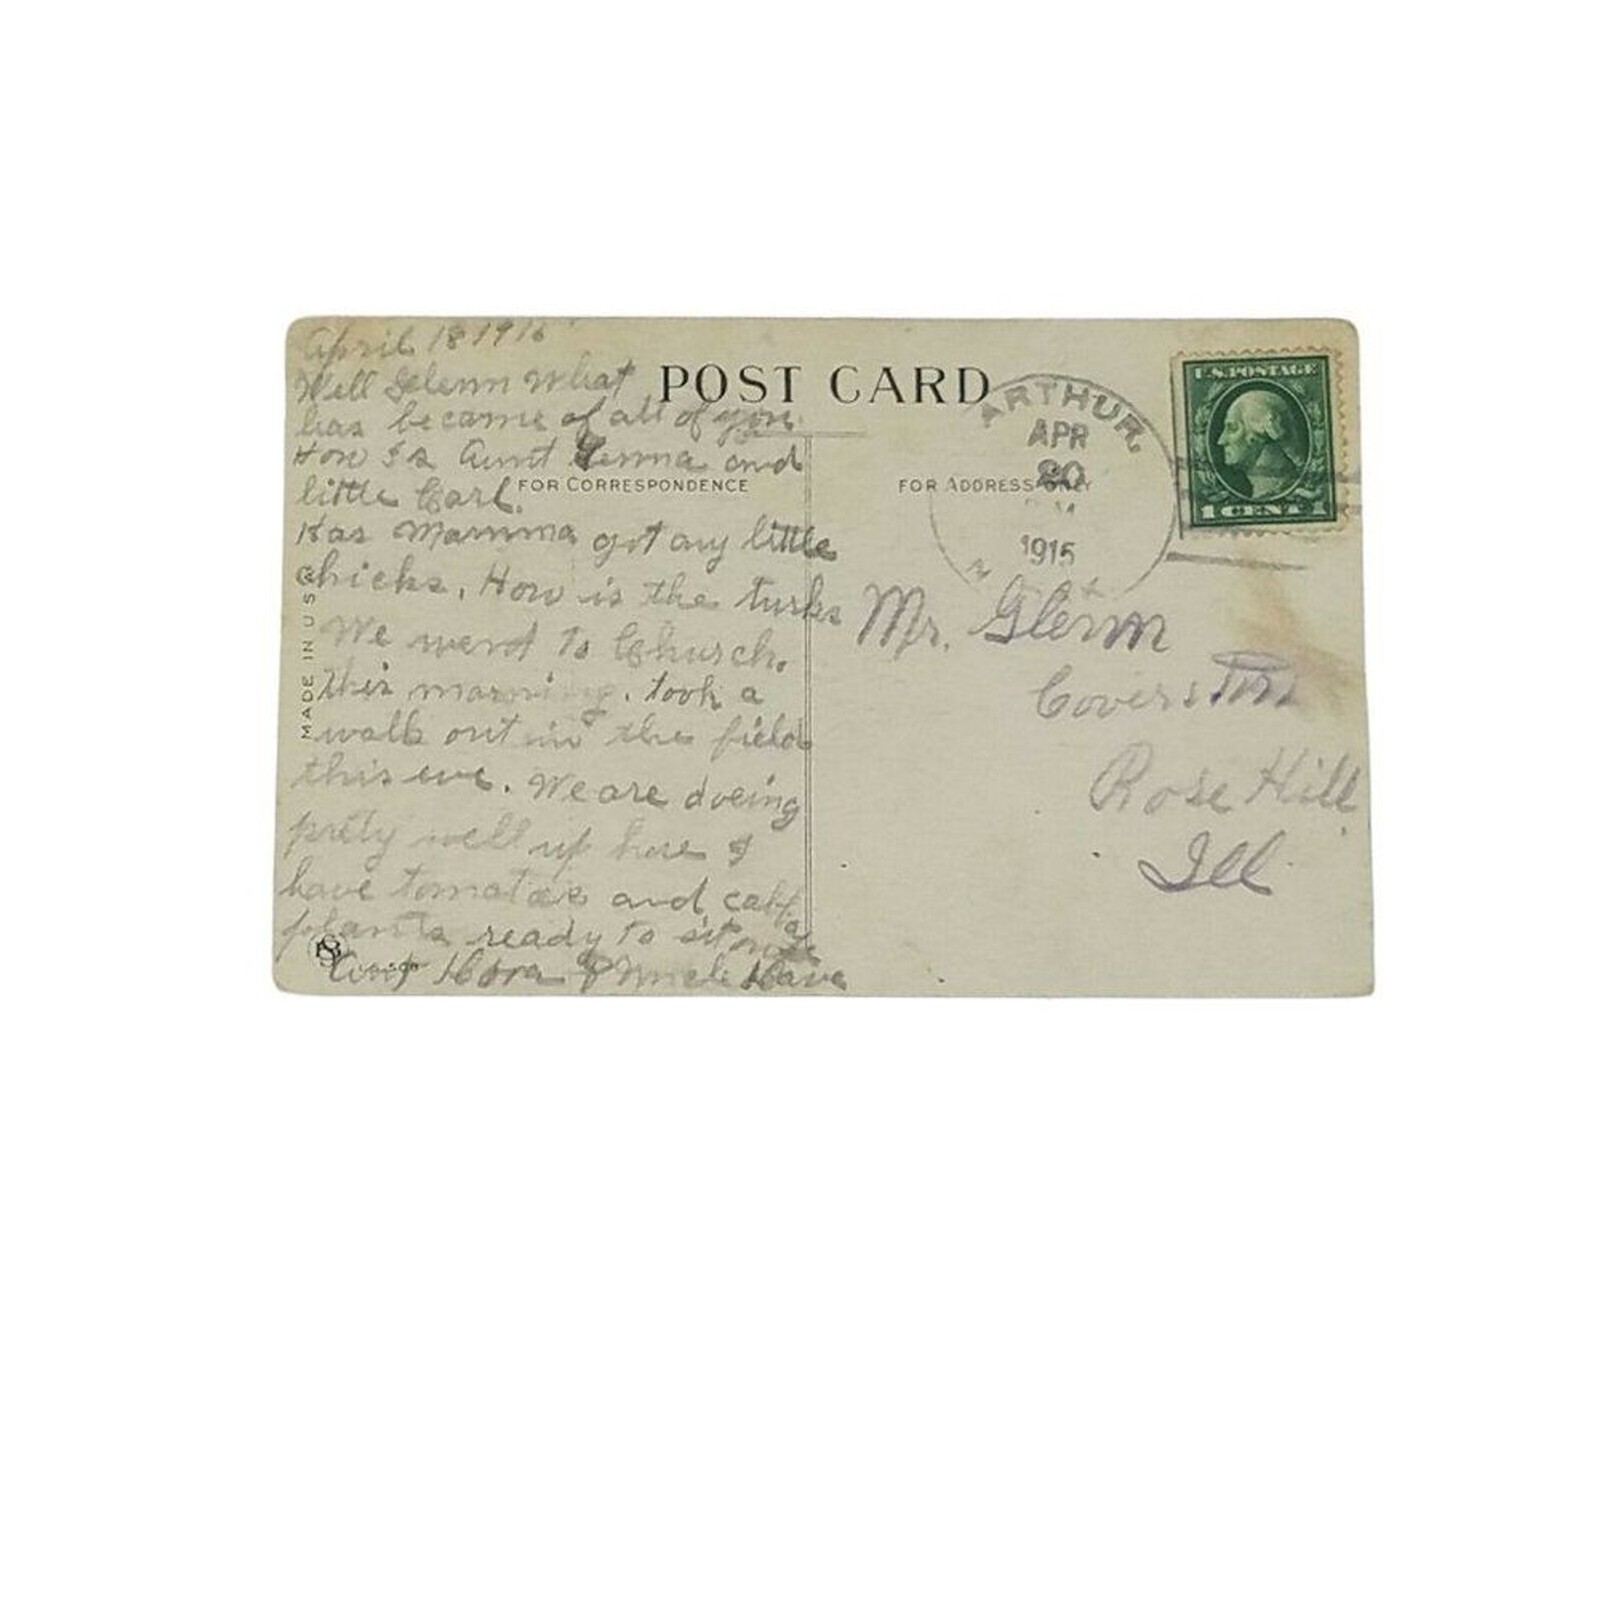 April 18 1915
Well Glenn What
has became of all of you.
How Is Aunt and
little Carl.
Has Mamma got any little
chicks. How is the turks
We went to Church.
this morning. took a
walk out in the field
this eve. We are doeing
prety well up here I
have tomatoes and cabbage
plants ready to sit out
Aunt & Uncle
MADE IN USA
POST CARD
FOR CORRESPONDENCE
FOR ADDRESS ONLY
ARTHUR,
APR
20
1915
U.S. POSTAGE
1 CENT 1
Mr. Glenn
Coverston
Rose Hill
Ill